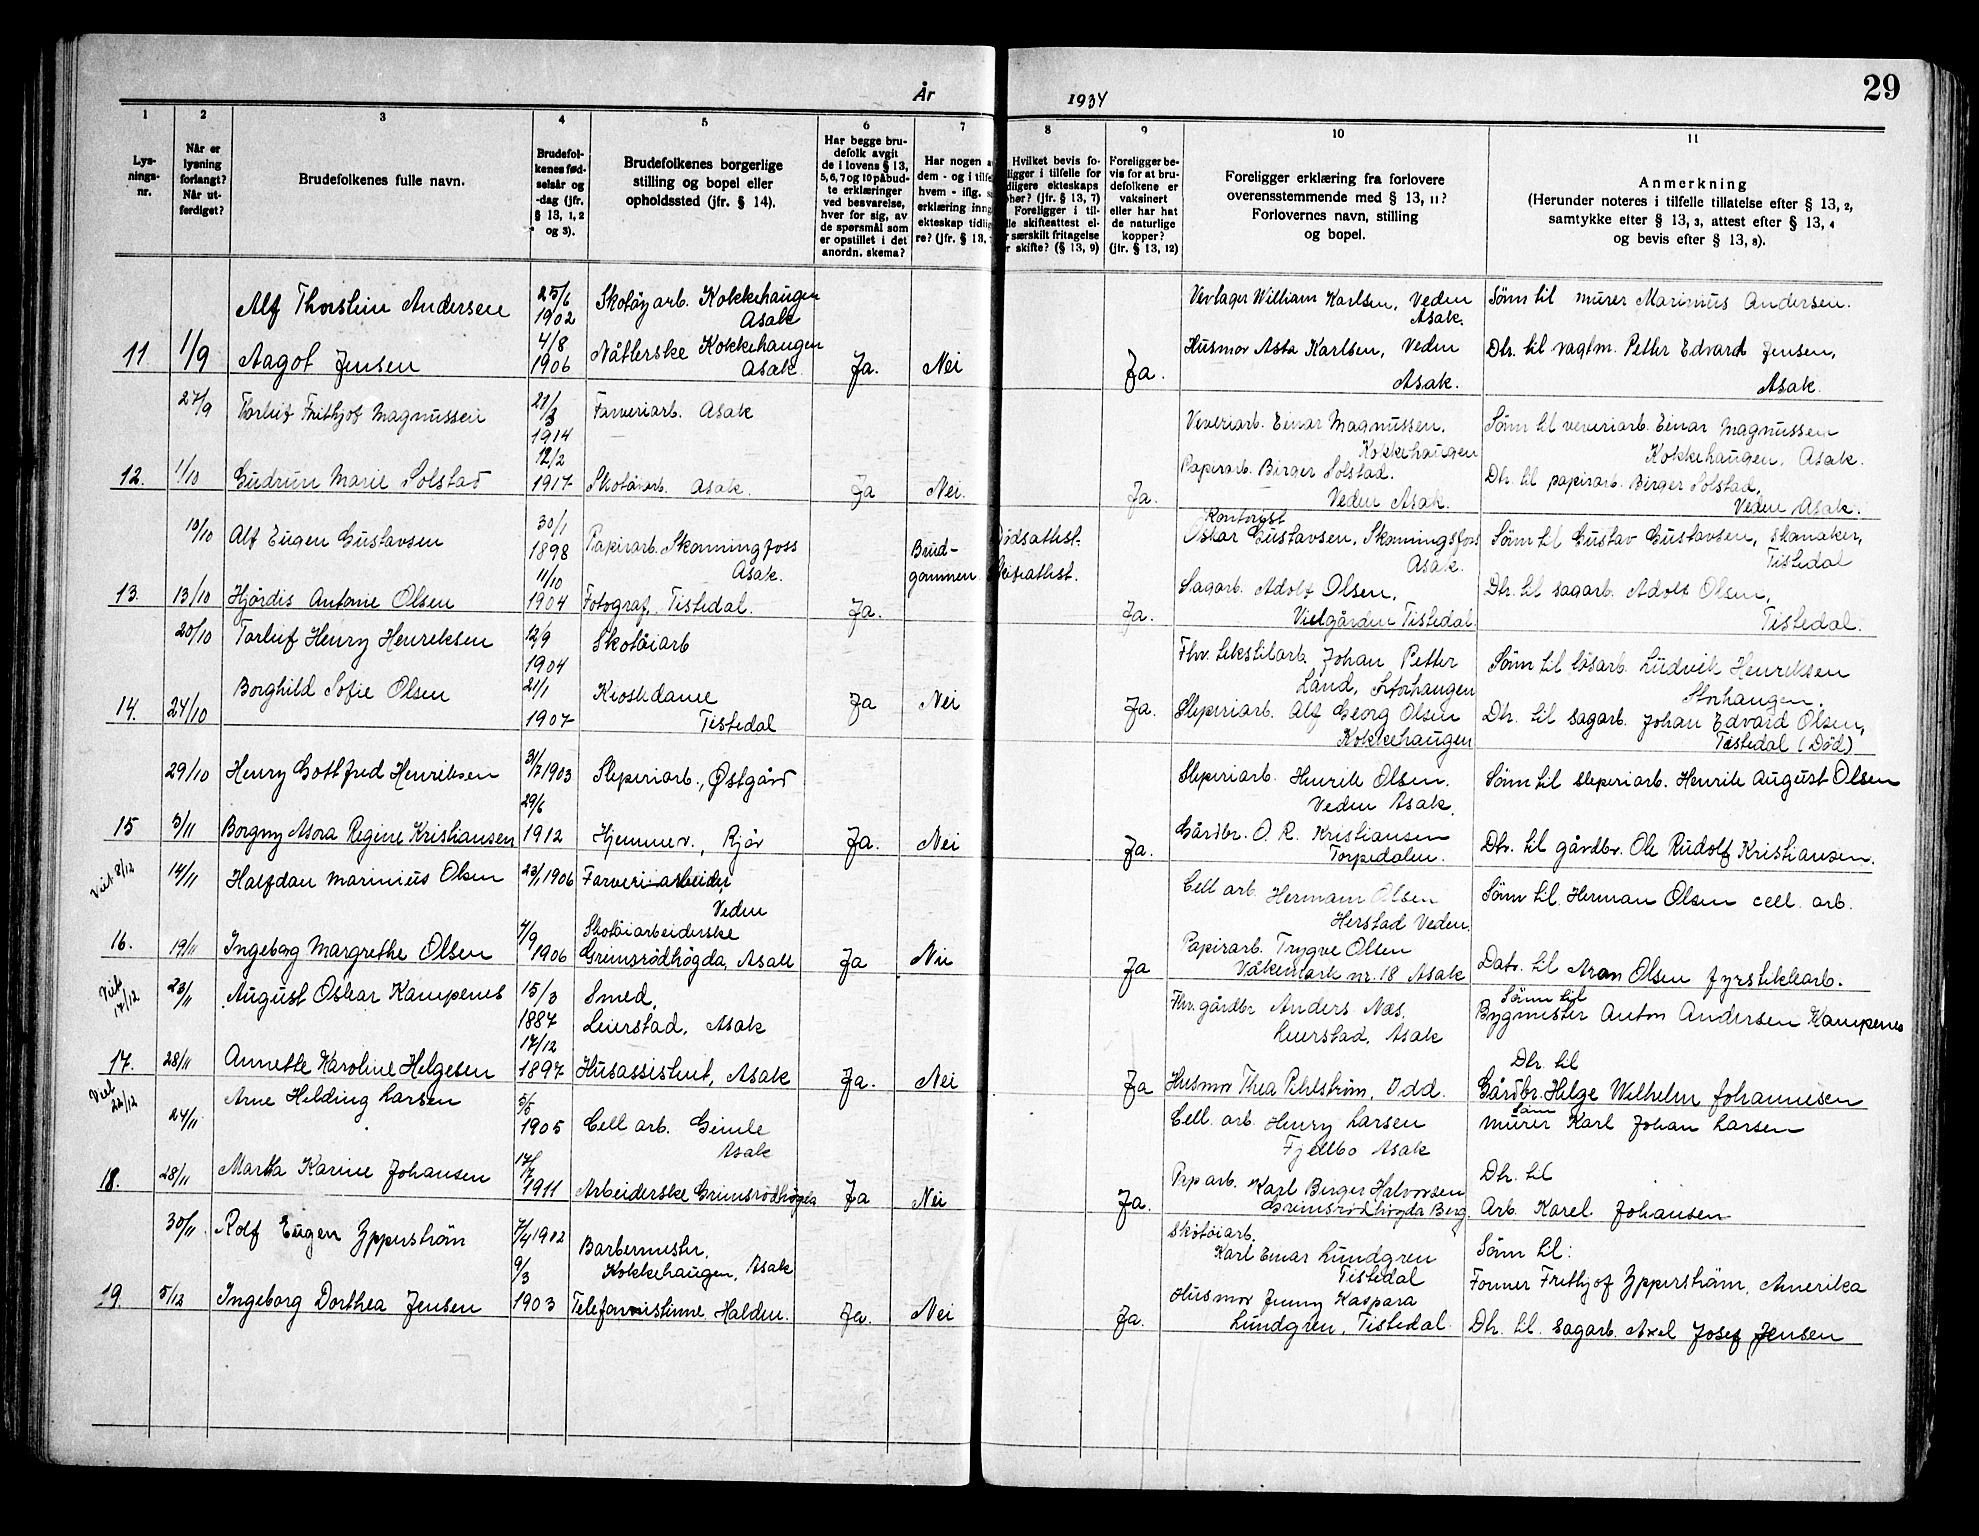 29
År 1934
1 2 3 4 5 6 7 8 9 10 11
Lys-
nings-
nr.
Når er
lysning
forlangt?
Når ut-
ferdiget?
Brudefolkenes fulle navn.
Brudefol-
kenes fød-
selsår og
-dag (jfr.
§ 13, 1, 2
og 3).
Brudefolkenes borgerlige
stilling og bopel eller
opholdssted (jfr. § 14).
Har begge bru-
defolk avgit
de i lovens § 13,
5, 6, 7 og 10 påbud-
te erklæringer
ved besvarelse,
hver for sig, av
de spørsmål som
er opstillet i det
anordn. skema?
Har nogen a
dem - og i tilfel
hvem - iflg. s
erklæring inng
ekteskap tidlig
re? (jfr. § 13,
Hvilket bevis fo-
ligger i tilfelle for
dligere ekteskaps
phør? (jfr. § 13, 7)
Foreligger i til-
lle skifteattest el-
r særskilt fritagelse
r skifte? (§ 13, 9)
Foreligger be-
vis for at bru-
defolkene er
vaksinert
eller har hat
de naturlige
kopper?
(jfr. § 13, 12)
Foreligger erklæring fra forlovere
overensstemmende med § 13, 11?
Forlovernes navn, stilling
og bopel.
Anmerkning
(Herunder noteres i tilfelle tillatelse efter § 13, 2,
samtykke efter § 13, 3, attest efter § 13, 4
og bevis efter § 13, 8).
Alf Thorstein Andersen 25/6 1902 Skotøyarb. Kokkehaugen Asak Verlager William Karlsen, Veden Asak. Sønn til murer Marinius Andersen.
11 1/9 Aagot Jensen 4/8 1906 Nåtlerske Kokkehaugen Asak. Ja. Nei Ja. Husmor Asta Karlsen, Veden Asak. Dtr. til vagtm. Petter Edvard Jensen, Asak.
27/9 Torleif Frithjof Magnussen 21/3 1914 Farveriarb. Asak Veveriarb. Einar Magnussen, Kokkehaugen Sønn til veveriarb. Einar Magnussen Kokkehaugen, Asak.
12. 1/10 Gudrun Marie Solstad 12/2 1917 Skotøiarb. Asak. Ja Nei. Ja. Papirarb. Birger Solstad. Veden Asak. Dtr. til papirarb. Birger Solstad, Veden Asak.
10/10 Alf Eugen Gustavsen 30/1 1898 Papirarb. Skonningfoss Asak. Brud- gommen Dødsattest. Skifteattest. Kontorist Oskar Gustavsen, Skonningsfoss Asak. Sønn til Gustav Gustavsen, skomaker, Tistedal
13. 13/10 Hjørdis Antonie Olsen 11/10 1904 Fotograf, Tistedal. Ja. Ja. Sagarb. Adolf Olsen, Vielgården Tistedal. Dtr. til sagarb. Adolf Olsen, Tistedal.
20/10 Torleif Henry Henriksen 12/9 1904 Skotøiarb Fhv. tekstilarb. Johan Petter Land, Storhaugen Sønn til løsarb. Ludvik Henriksen Storhaugen.
14. 24/10 Borghild Sofie Olsen 21/1 1907 Kioskdame Tistedal Ja Nei Ja. Sleperiarb. Alf Georg Olsen Kokkehaugen Dtr. til sagarb. Johan Edvard Olsen, Tistedal (Død)
29/10 Henry Gottfred Henriksen 31/7 1903 Sleperiarb., Østgård Sleperiarb. Henrik Olsen. Veden Asak. Sønn til sleperiarb. Henrik August Olsen
15 3/11 Borgny Asora Regine Kristiansen 29/6 1912 Hjemmev., Rjør Ja. Nei Ja. Gårdbr. O. R. Kristiansen Torpedalen. Dtr. til gårdbr. Ole Rudolf Kristiansen.
Viet 8/12 14/11 Halfdan Marinius Olsen 22/1 1906 Farveriarbeider, Veden Cell arb. Hermann Olsen Herstad Veden. Sønn til Herman Olsen cell. arb.
16. 19/11 Ingeborg Margrethe Olsen 4/9 1906 Skotøiarbeiderske Grimsrødhøgda, Asak Ja Nei Ja Papirarb. Trygve Olsen Våkemark nr. 18 Asak Datr. til Aron Olsen fyrstikkarb.
Viet 17/12 23/11 August Oskar Kampenes 15/3 1887 Smed, Leierstad, Asak Fhv. gårdbr Anders Næs, Leierstad, Asak Sønn til Bygmester Anton Andersen Kampenes
17. 28/11 Annette Karoline Helgesen 17/12 1897 Husassistent, Asak Ja. Nei Ja Husmor Thea Pehlstrøm, Idd. Dtr. til Gårdbr. Helge Wilhelm Johannesen
Viet 22/12 24/11 Arne Helding Larsen 5/5 1905 Cell arb. Gimle Asak Cell. arb Henry Larsen Fjellbo Asak Sønn murer Karl Johan Larsen
18. 28/11 Martha Karine Johansen 17/12 1911 Arbeiderske Grimsrødhøgda Ja Nei Ja. Prp arb. Karl Birger Halvorsen Grimsrødhøgda Berg. Dtr. til Arb. Karel Johansen
30/11 Rolf Eugen Ypperstrøm 7/4 1902 Barbermester, Kokkehaugen, Asak Skotøiarb. Karl Einar Lundgren Tistedal Sønn til: Former Frithjof Ypperstrøm, Amerika
19. 5/12 Ingeborg Dorthea Jensen 9/3 1903 Telefonistinne Halden. Ja. Nei Ja. Husmor Jenny Kaspara Lundgren, Tistedal. Dtr. til. sagarb. Axel Josef Jensen